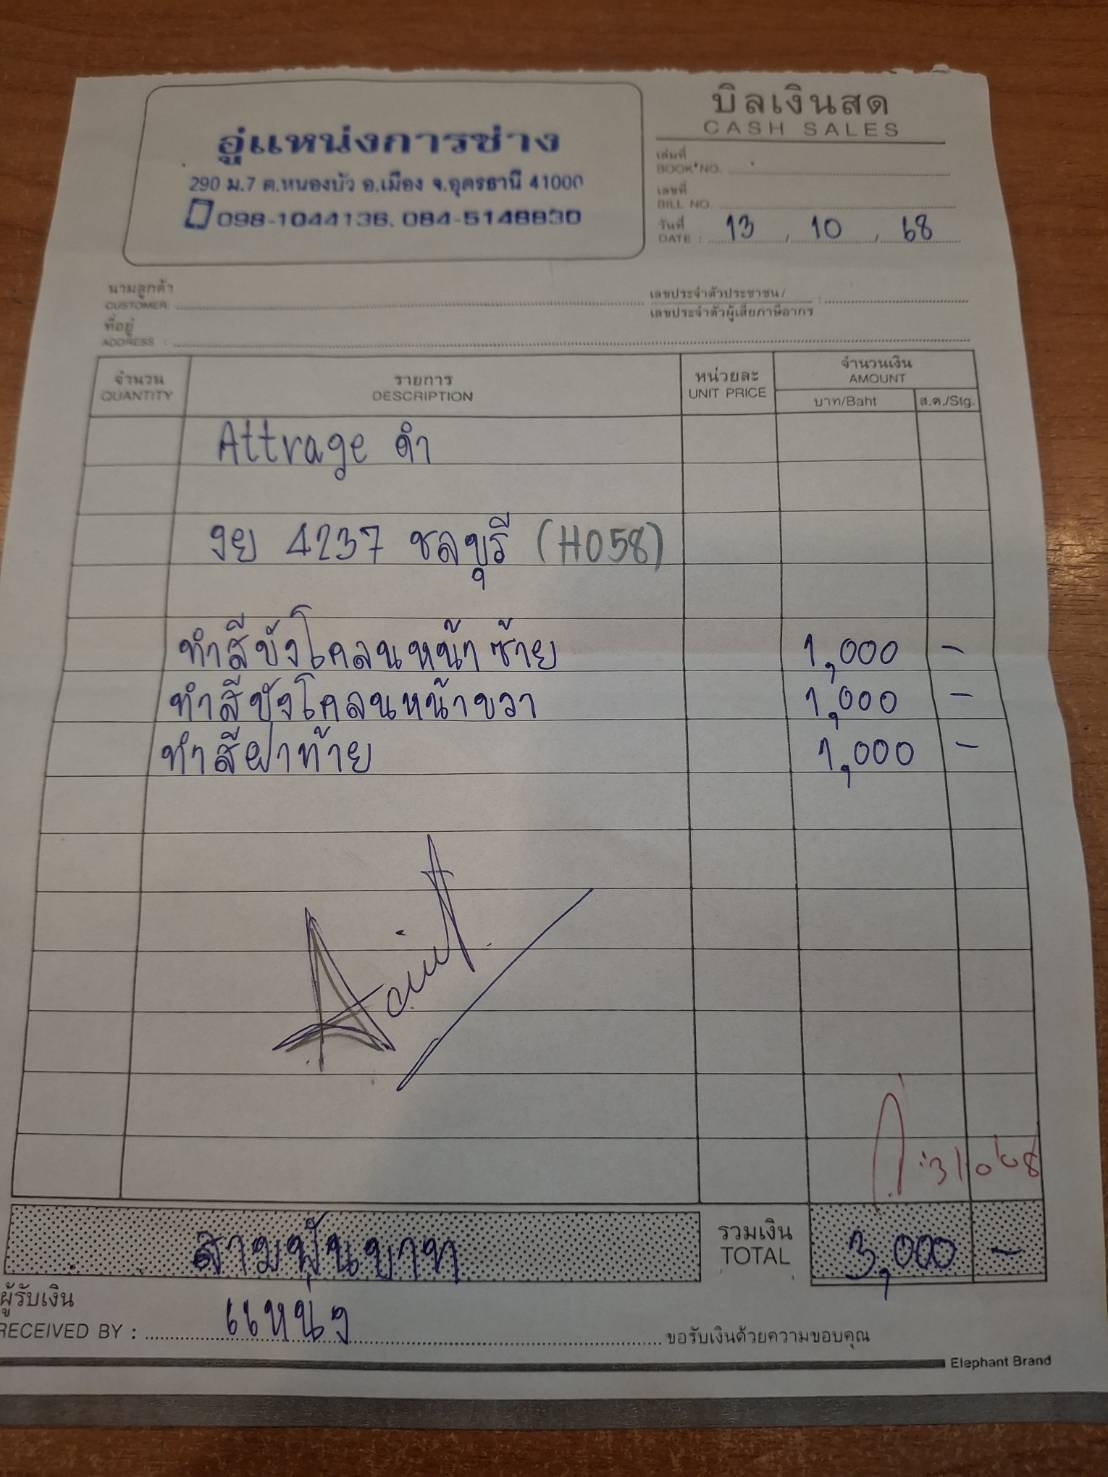 อู่แหน่งการช่าง
290 ม.7 ต.หนองบัว อ.เมือง จ.อุดรธานี 41000
098-1044136, 084-5148830
บิลเงินสด
CASH SALES
เล่มที่
BOOK NO.
เลขที่
BILL NO.
วันที่
DATE : 13 / 10 / 68
นามลูกค้า
CUSTOMER
เลขประจำตัวประชาชน/ :
เลขประจำตัวผู้เสียภาษีอากร
ที่อยู่
ADDRESS :
จำนวน รายการ หน่วยละ จำนวนเงิน
QUANTITY DESCRIPTION UNIT PRICE AMOUNT
บาท/Baht ส.ต./Stg.
Attrage ดำ
งย 4237 ชลบุรี (H058)
ทำสีบังโคลนหน้าซ้าย 1,000 -
ทำสีบังโคลนหน้าขวา 1,000 -
ทำสีฝาท้าย 1,000 -
สามพันบาท รวมเงิน TOTAL 3,000 -
ผู้รับเงิน
RECEIVED BY : แหน่ง ขอรับเงินด้วยความขอบคุณ
Elephant Brand